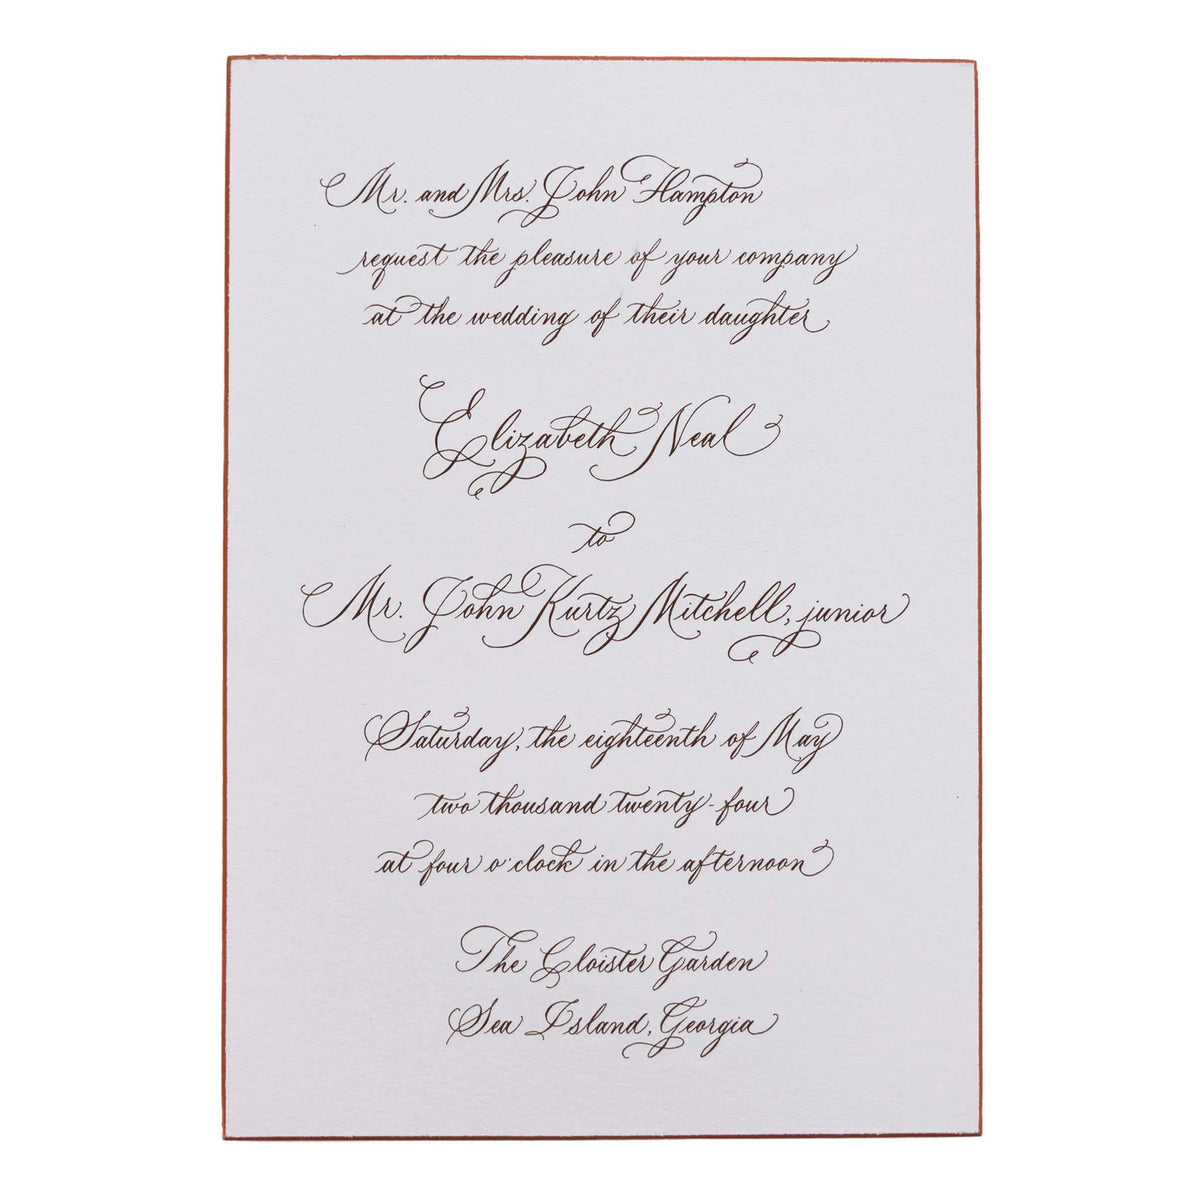 Mr. and Mrs. John Hampton
request the pleasure of your company
at the wedding of their daughter
Elizabeth Neal
to
Mr. John Kurtz Mitchell, junior
Saturday, the eighteenth of May
two thousand twenty-four
at four o'clock in the afternoon
The Cloister Garden
Sea Island, Georgia